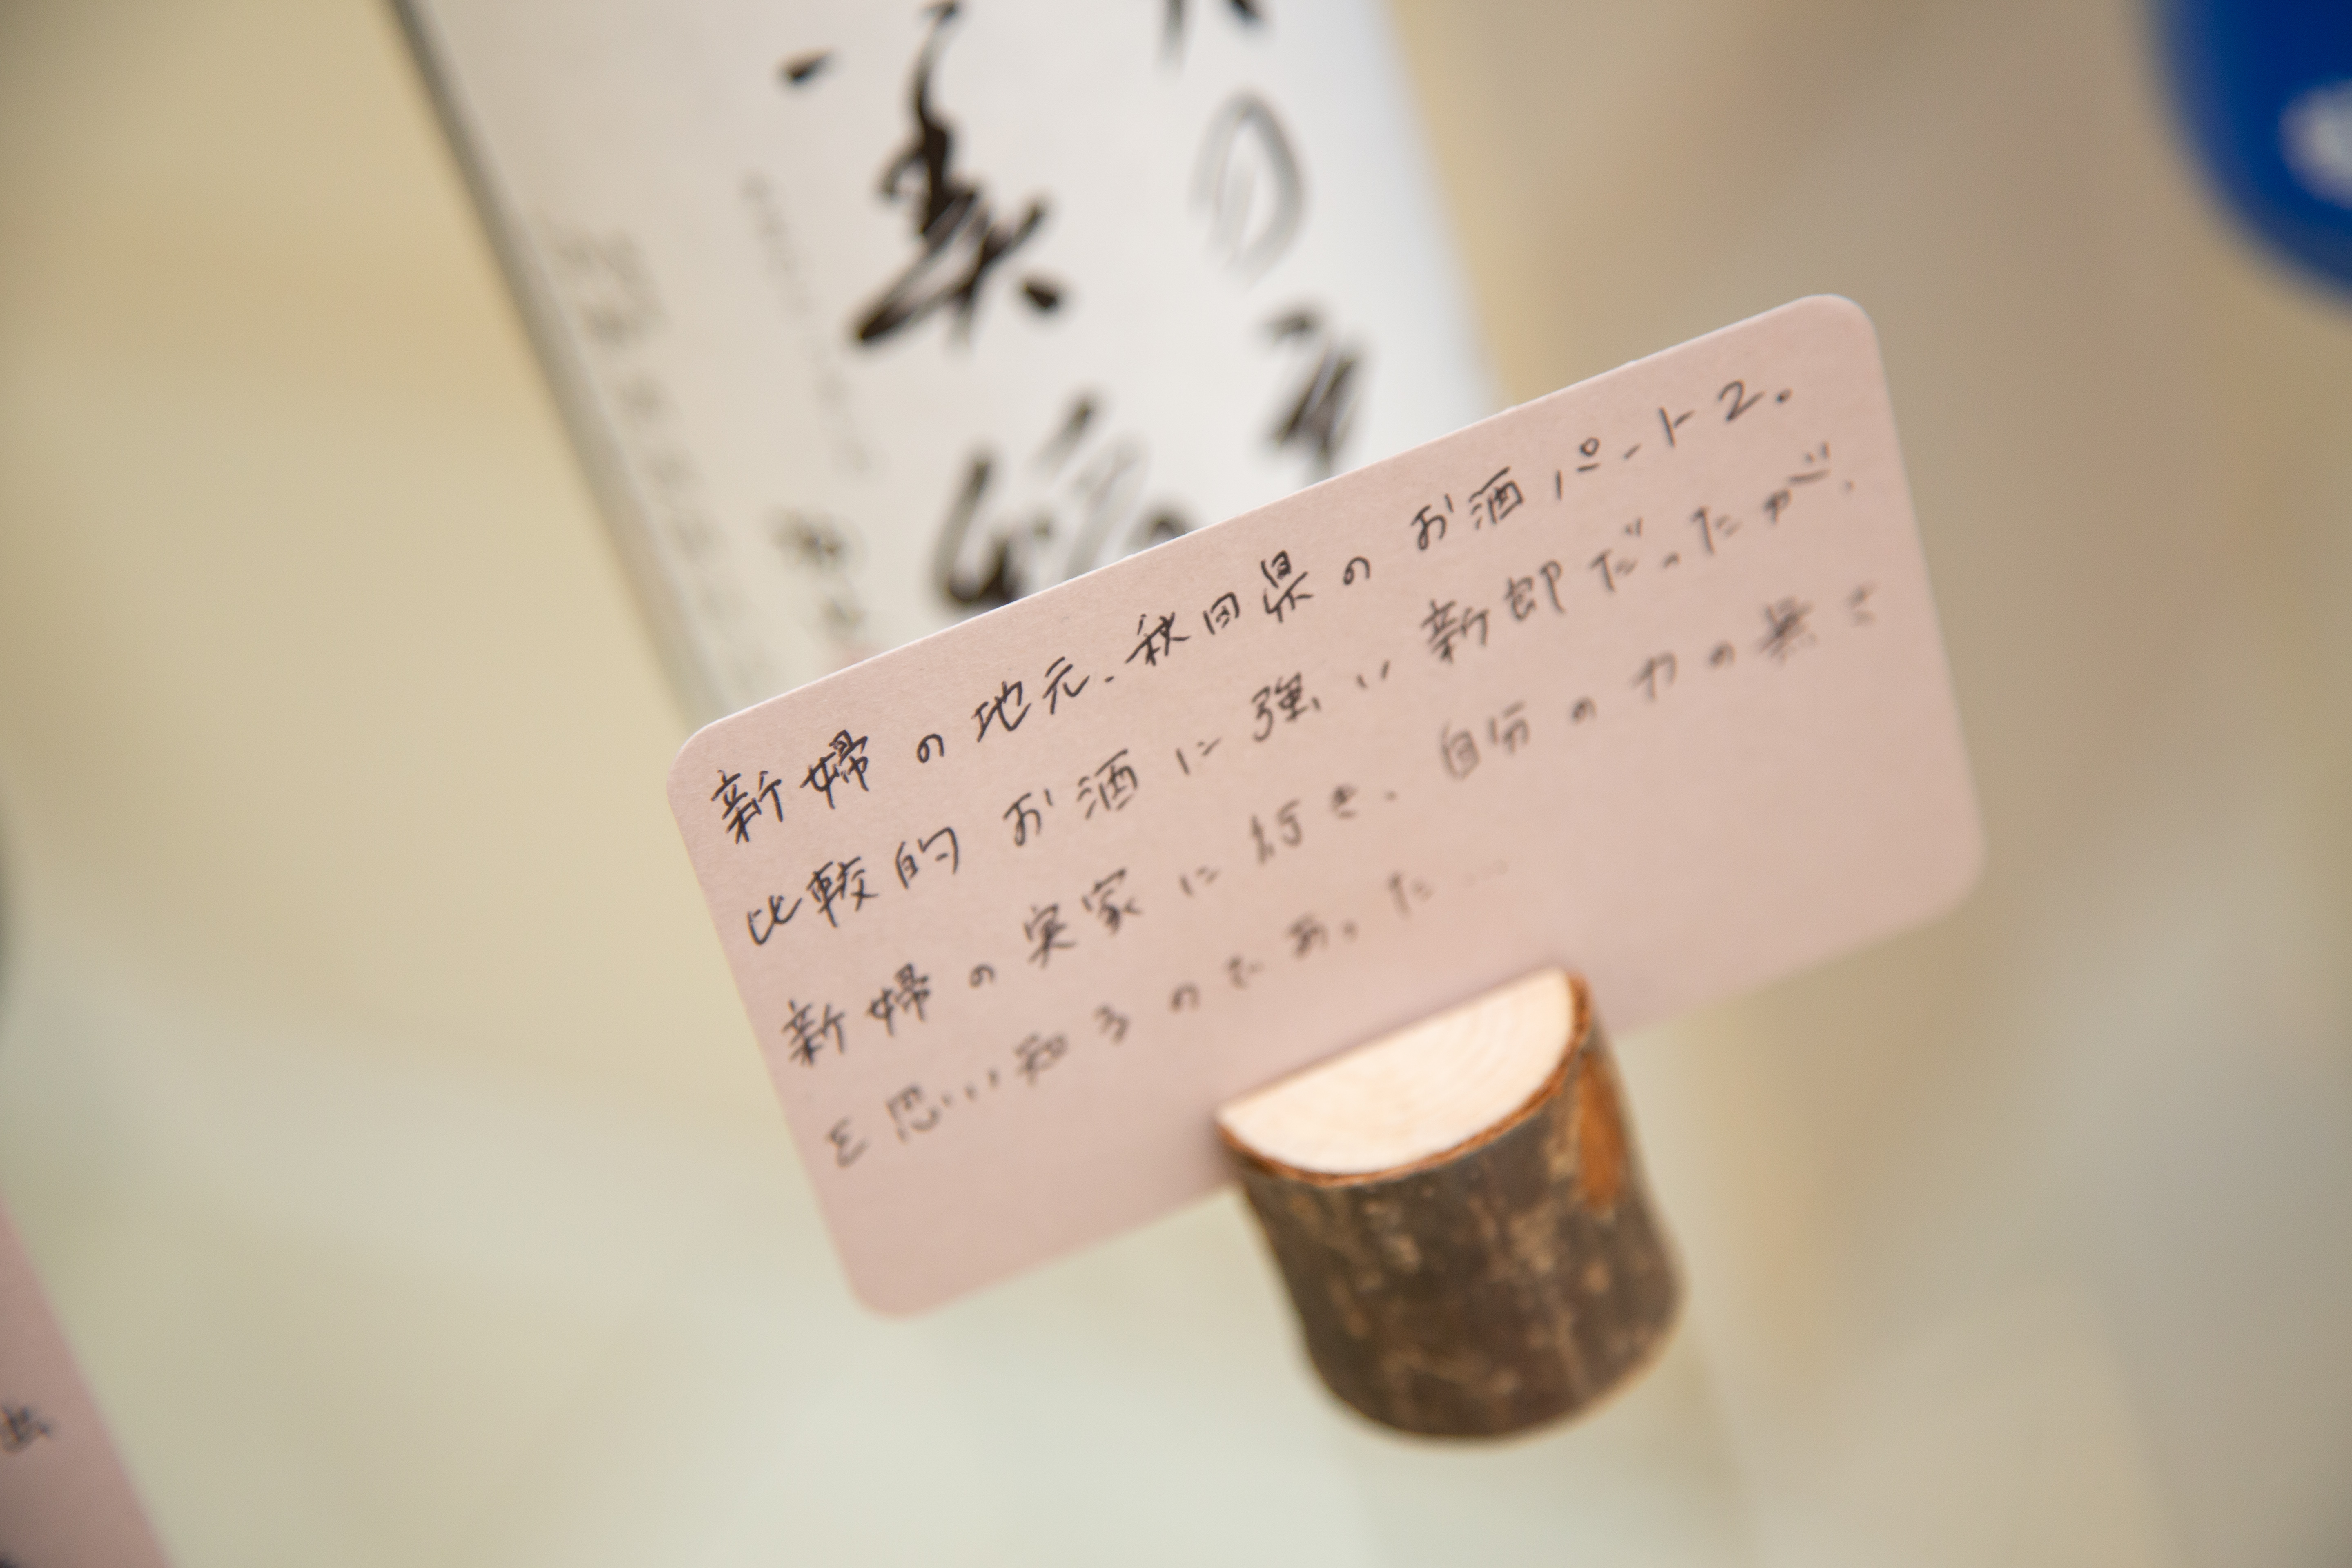 新婦の地元、秋田県のお酒パート2。
比較的お酒に強い新郎だったが、
新婦の実家に行き、自分の力の無さ
を思い知るのであった…
美
の